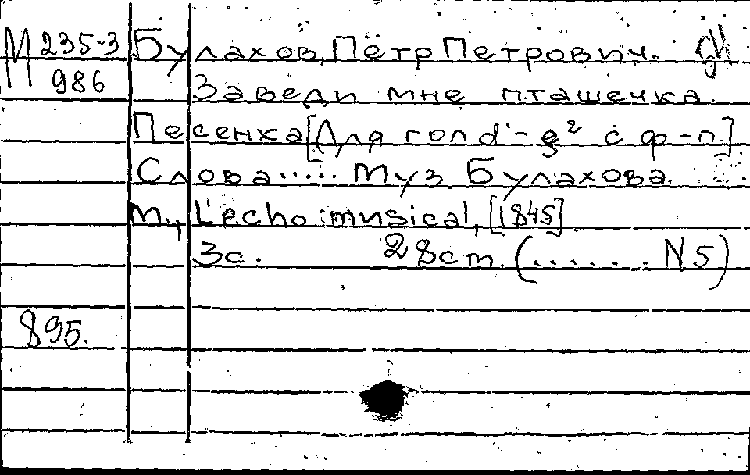 М 235-3
986
Булахов, Пётр Петрович.
Заведи мне пташечка.
Песенка [Для гол d'-g² с ф-п]
Слова..... Муз Булахова.
М., L'echo musical, [1845]
3с. 28cm. (....... N 5)
895.